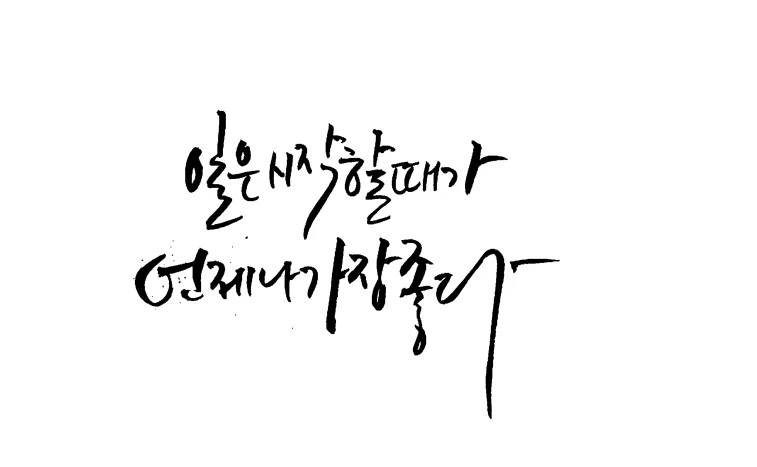 일은 시작할 때가
언제나 가장 좋다